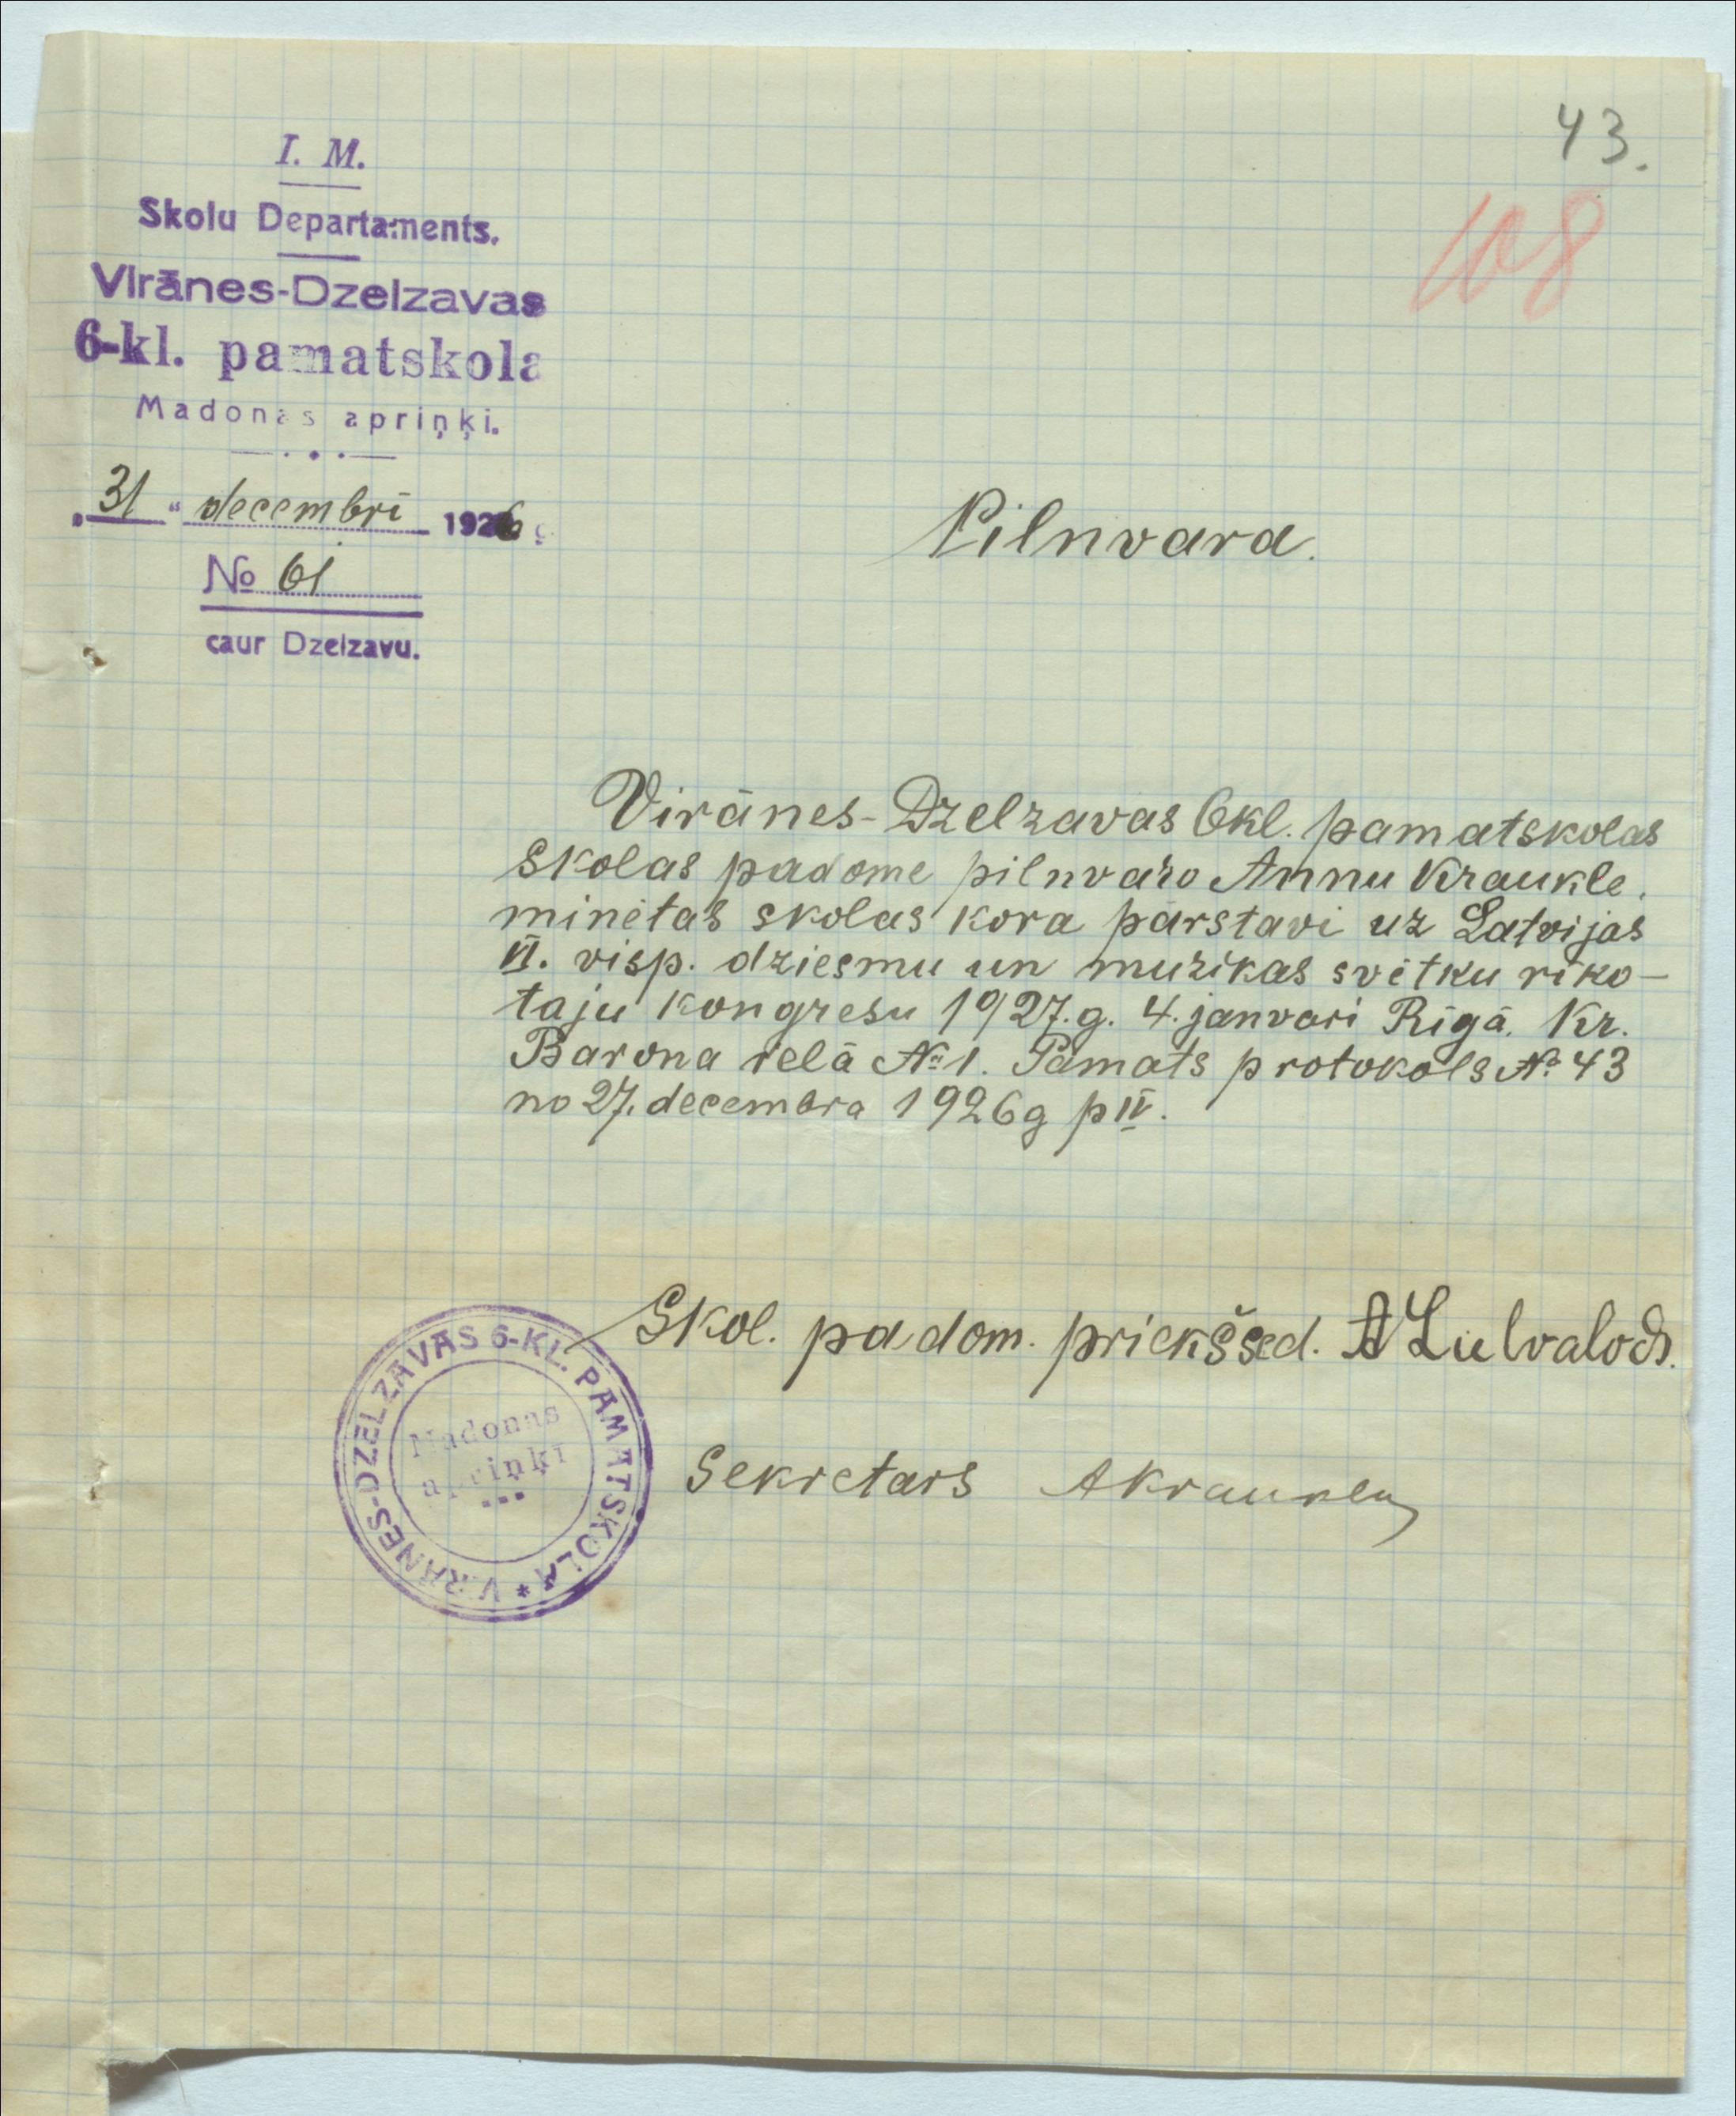 43.
108
I. M.
Skolu Departaments.
Virānes-Dzelzavas
6-kl. pamatskola
Madonas apriņķi.
„31“ decembrī 1926 g.
No 61
caur Dzelzavu.
Pilnvara.
Virānes-Dzelzavas 6kl. pamatskolas
skolas padome pilnvaro Annu Kraukle,
minētas skolas kora pārstāvi uz Latvijas
VI. visp. dziesmu un muzikas svētku rīko-
taju kongresu 1927.g. 4. janvarī Rīgā, Kr.
Barona ielā № 1. Pamats protokols № 43
no 27. decembra 1926g p IV.
Skol. padom. priekšsed. A
Sekretars AKraukle
VIRĀNES-DZELZAVAS 6-KL. PAMATSKOLA *
Madonas
apriņķī